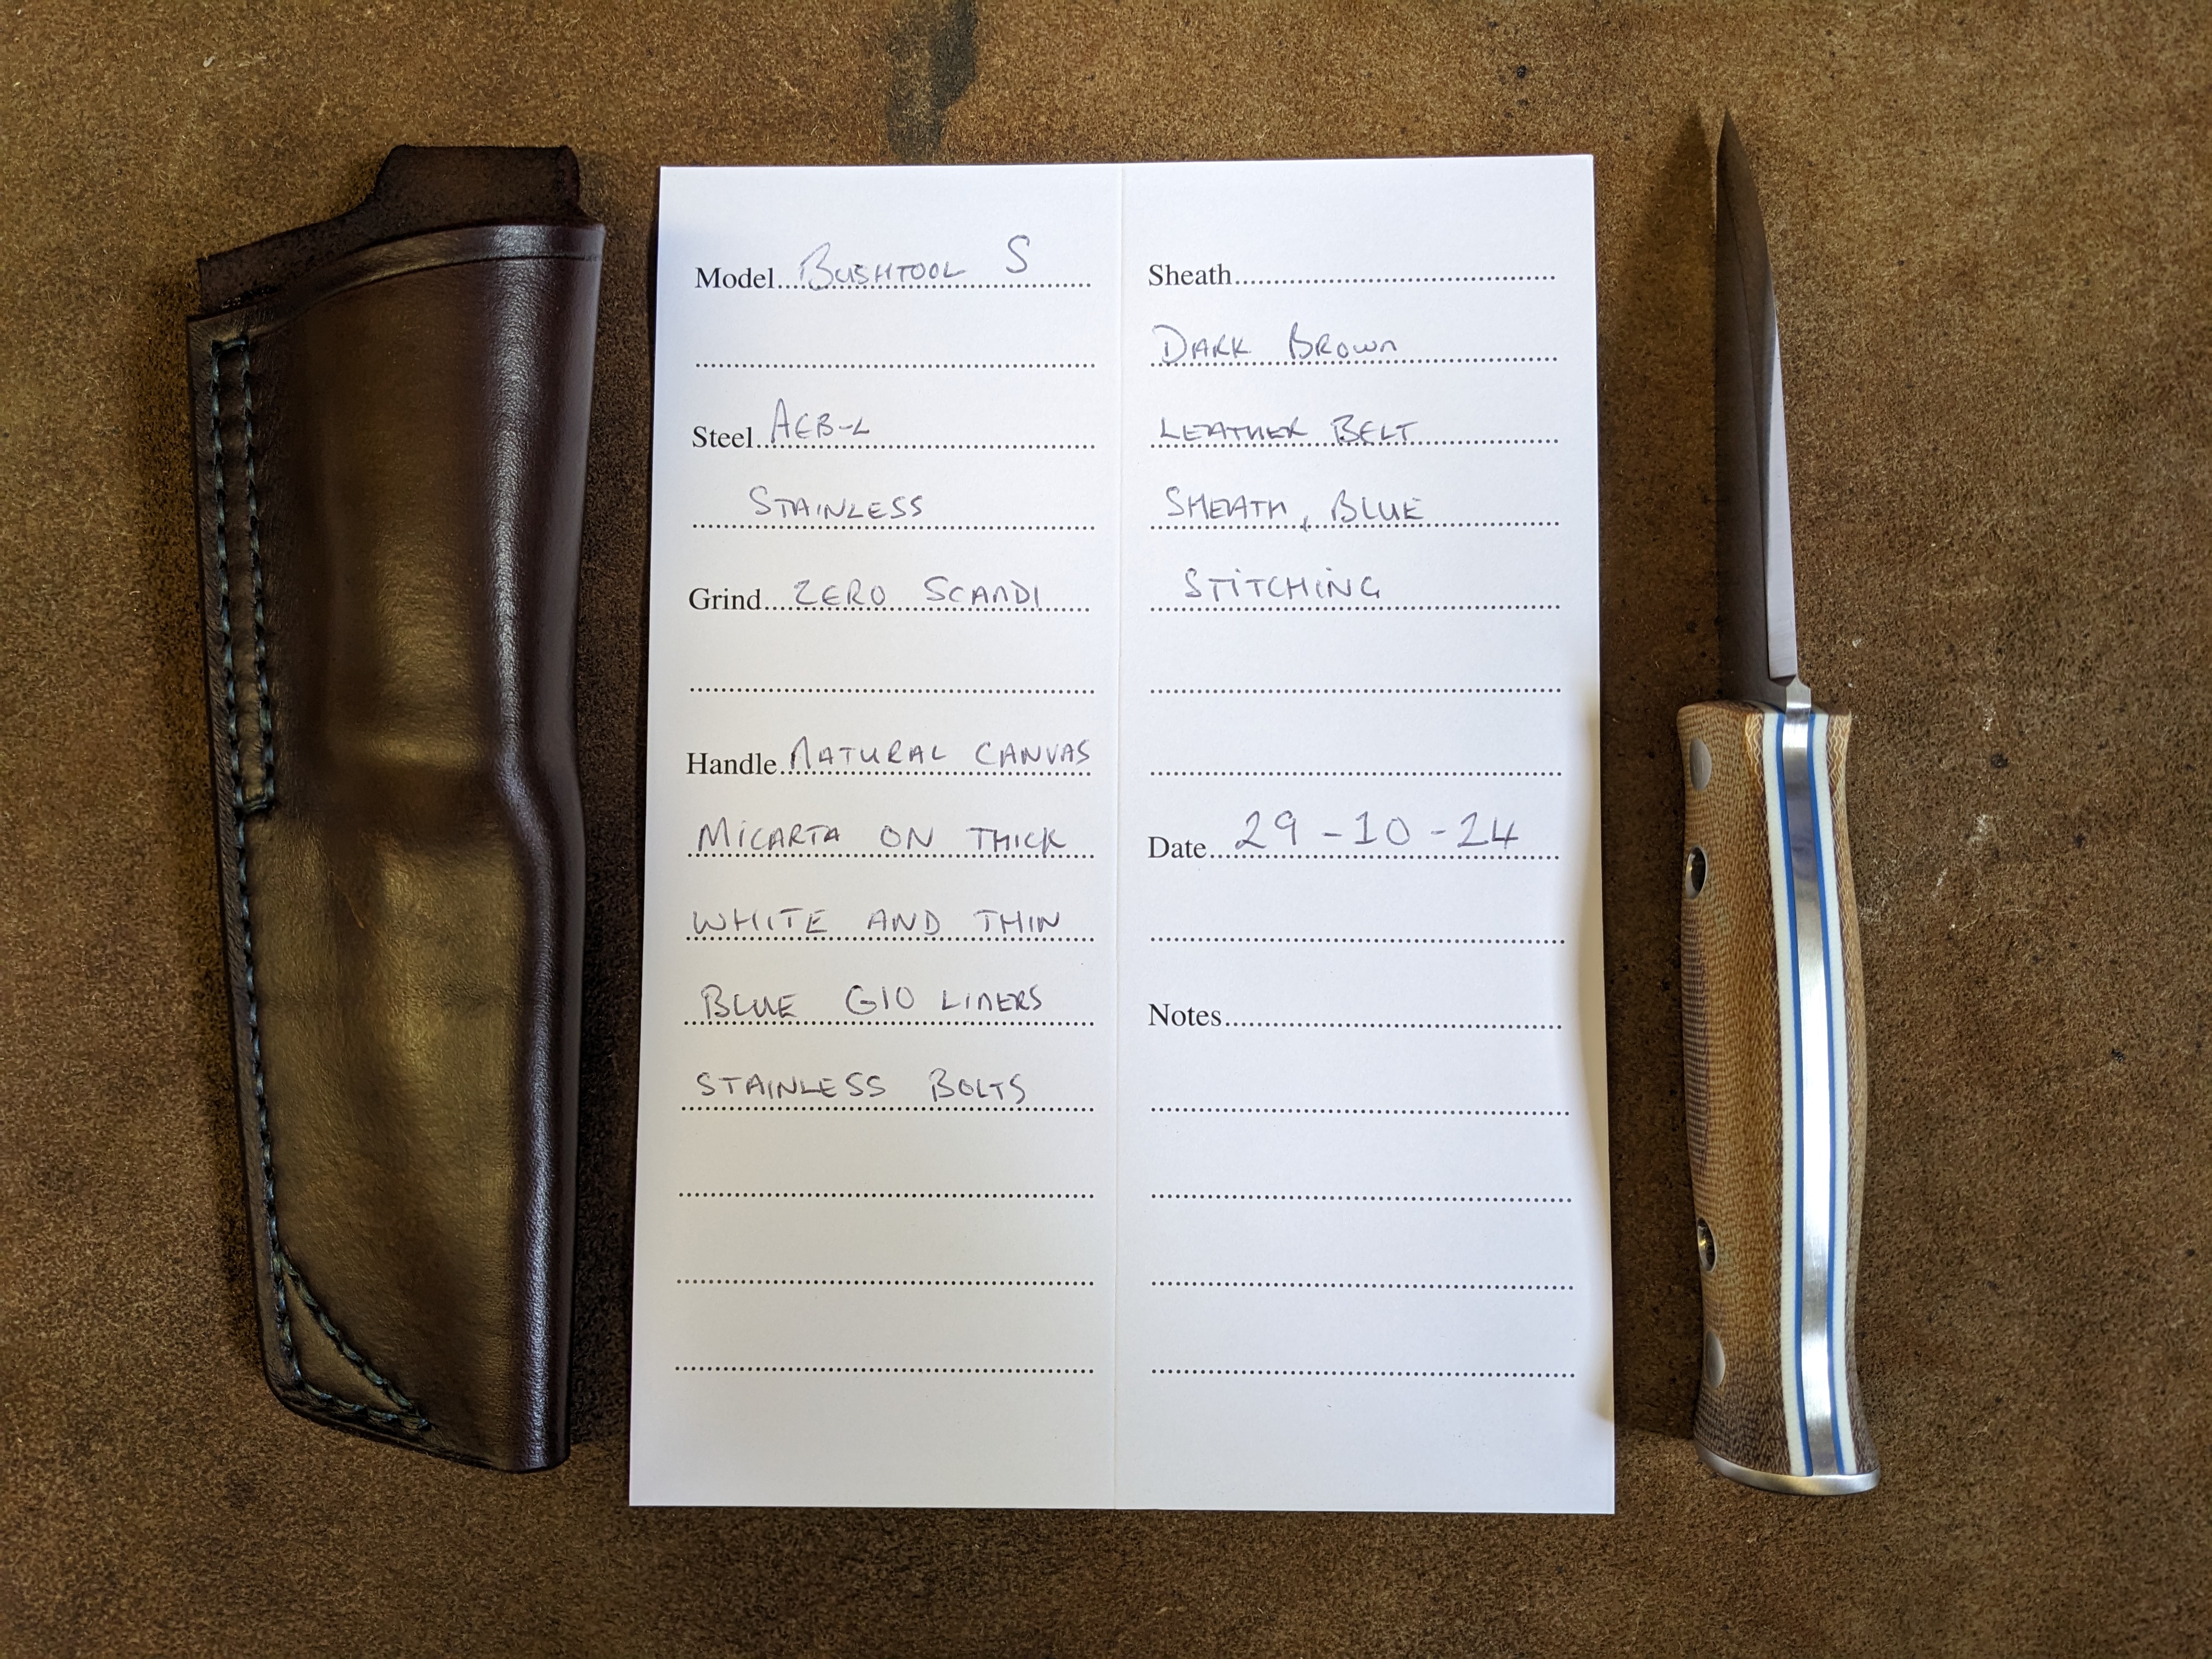 Model Bushtool S
Steel AEB-L
STAINLESS
Grind ZERO SCANDI
Handle NATURAL CANVAS
MiCARTA ON THICK
WHITE AND THIN
BLUE G10 LINERS
STAINLESS BOLTS
Sheath
DARK BROWN
LEATHER BELT
SHEATH, BLUE
STiTCHiNG
Date 29-10-24
Notes